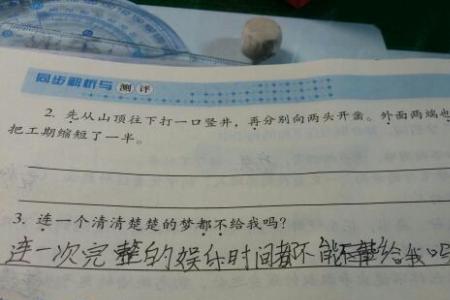 同步解析与测评
2. 先从山顶往下打一口竖井,再分别向两头开凿。外面两端也
把工期缩短了一半。
3. 连一个清清楚楚的梦都不给我吗?
连一次完整的娱乐时间都不能给我吗